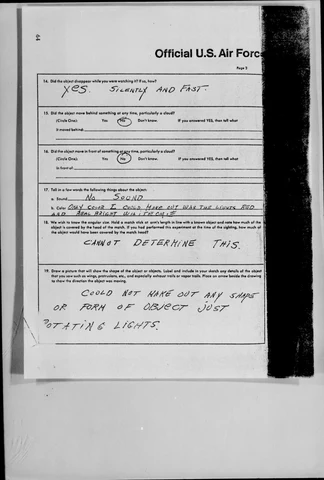 64
Official U.S. Air Forc
Page 3
14. Did the object disappear while you were watching it? If so, how?
YES. SILENTLY AND FAST.
15. Did the object move behind something at any time, particularly a cloud?
(Circle One): Yes No Don't know. If you answered YES, then tell what
it moved behind:
16. Did the object move in front of something at any time, particularly a cloud?
(Circle One): Yes No Don't know. If you answered YES, then tell what
in front of:
17. Tell in a few words the following things about the object:
a. Sound: NO SOUND
b. Color: ONLY COLOR I COULD MAKE OUT WAS THE LIGHTS RED
AND REAL BRIGHT WHITE
18. We wish to know the angular size. Hold a match stick at arm's length in line with a known object and note how much of the
object is covered by the head of the match. If you had performed this experiment at the time of the sighting, how much of
the object would have been covered by the match head?
CANNOT DETERMINE THIS.
19. Draw a picture that will show the shape of the object or objects. Label and include in your sketch any details of the object
that you saw such as wings, protrusions, etc., and especially exhaust trails or vapor trails. Place an arrow beside the drawing
to show the direction the object was moving.
COULD NOT MAKE OUT ANY SHAPE
OR FORM OF OBJECT JUST
ROTATING LIGHTS.